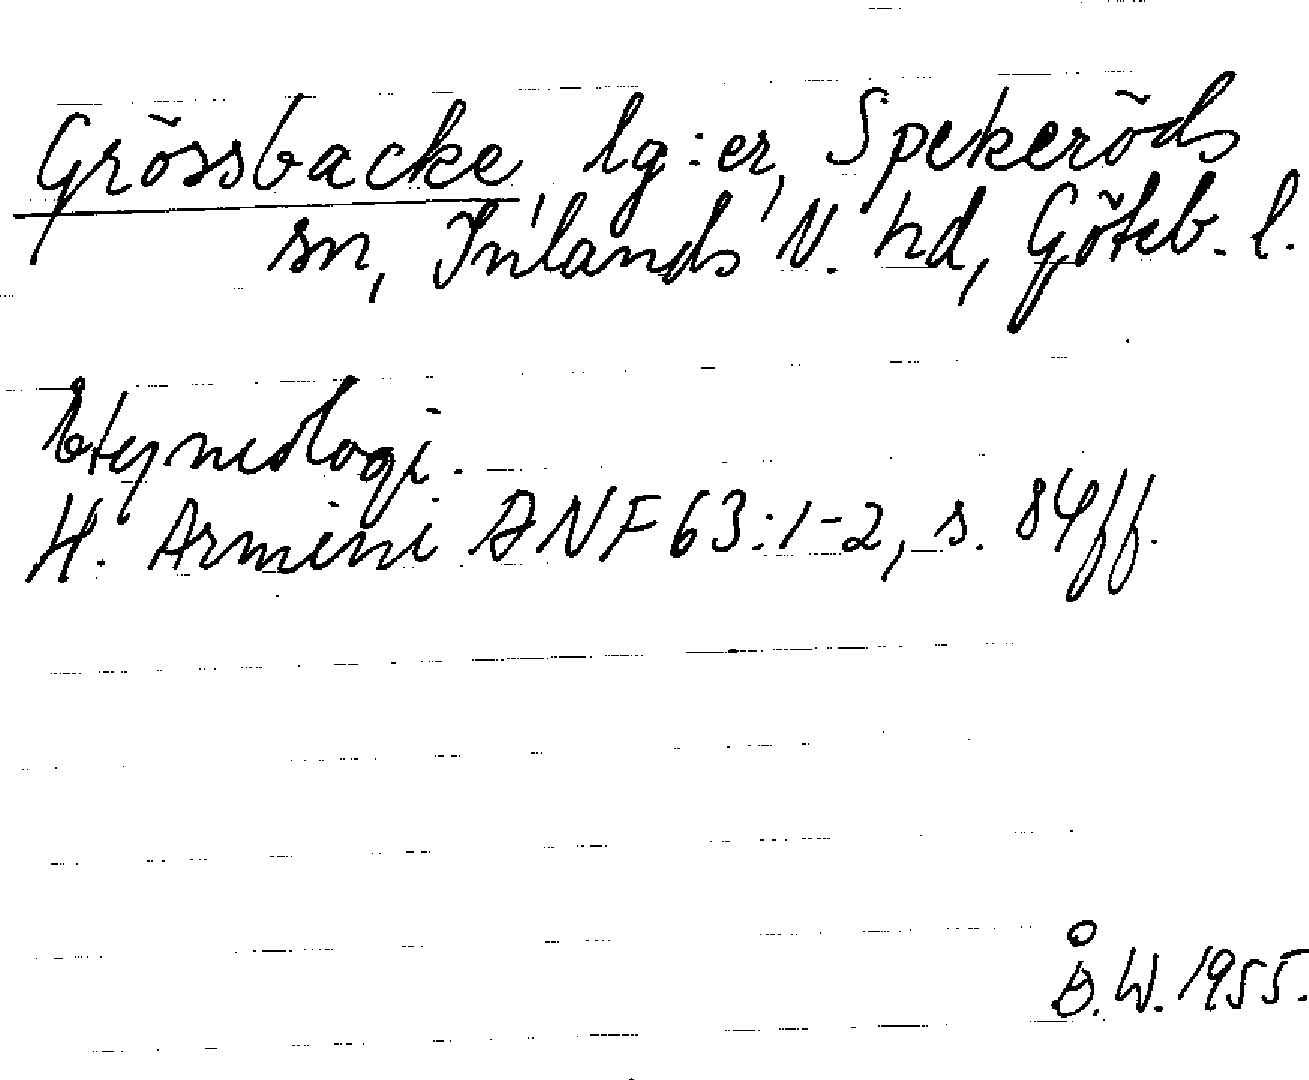 Grössbacke lg:er, Spekeröds
sn, Inlands N. hd, Göteb. l.
Etymologi.
H. Armini ANF 63:1-2, s. 84ff.
Å.W. 1955.